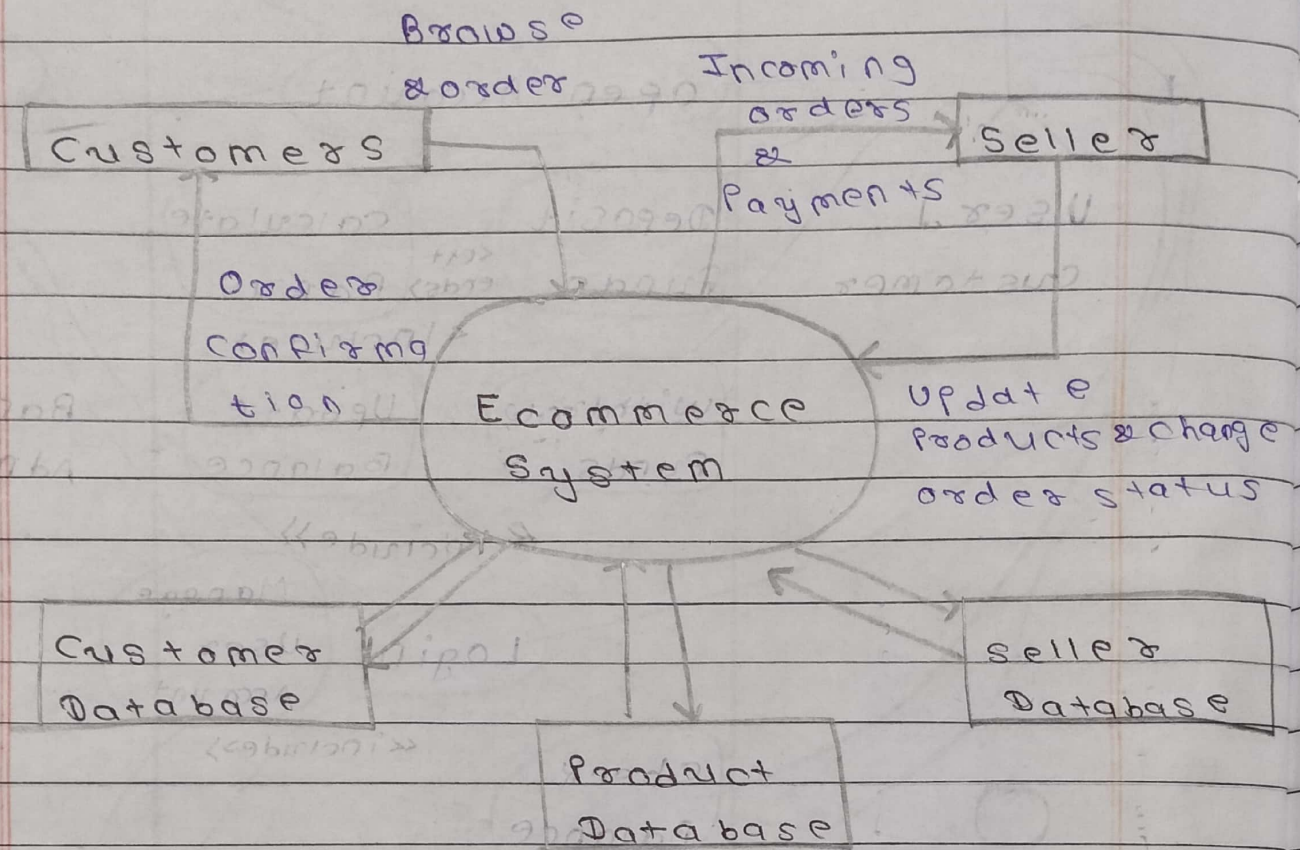 Browse
& order
Incoming
orders
&
Payments
Customers
Seller
Order
Confirma
tion
Ecommerce
System
Update
Products & Change
order status
Customer
Database
Seller
Database
Product
Database